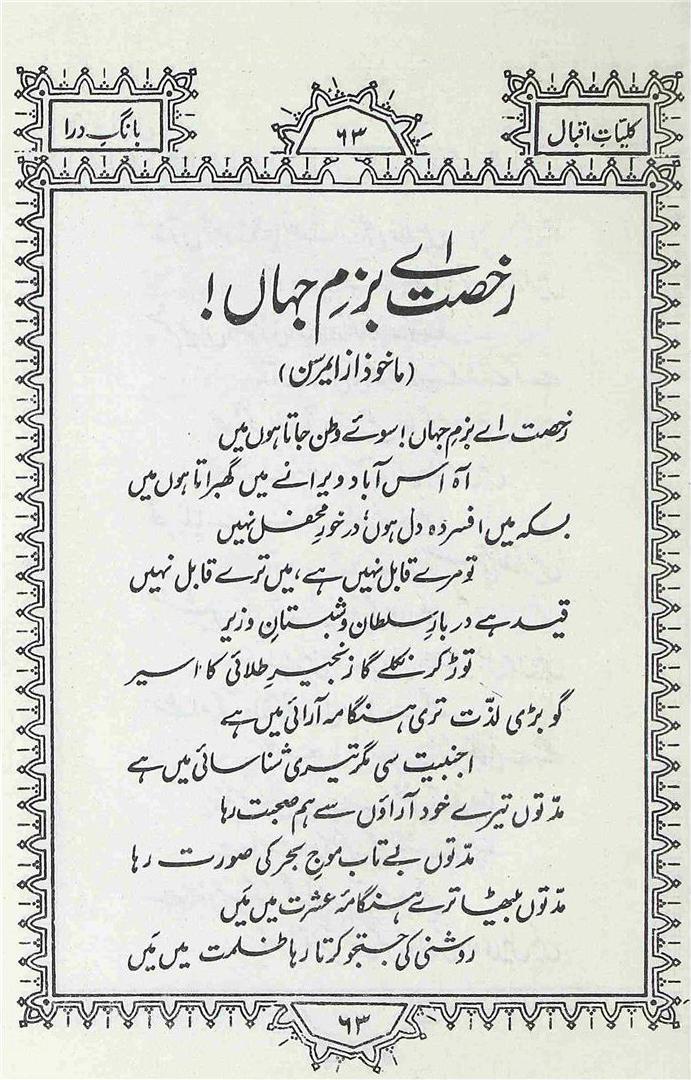 کلیاتِ اقبال
۶۳
بانگِ درا
رخصت اے بزمِ جہاں!
(ماخوذ از ایمرسن)
رخصت اے بزمِ جہاں! سوئے وطن جاتا ہوں میں
آہ اس آباد ویرانے میں گھبراتا ہوں میں
بسکہ میں افسردہ دل ہوں، درخورِ محفل نہیں
تو مرے قابل نہیں ہے، میں ترے قابل نہیں
قید ہے دربارِ سلطان و شبستانِ وزیر
توڑ کر نکلے گا زنجیرِ طلائی کا اسیر
گو بڑی لذّت تری ہنگامہ آرائی میں ہے
اجنبیت سی مگر تیری شناسائی میں ہے
مدّتوں تیرے خود آراؤں سے ہم صحبت رہا
مدّتوں بے تاب موجِ بحر کی صورت رہا
مدّتوں بیٹھا ترے ہنگامۂ عشرت میں مَیں
روشنی کی جستجو کرتا رہا ظلمت میں مَیں
۶۳